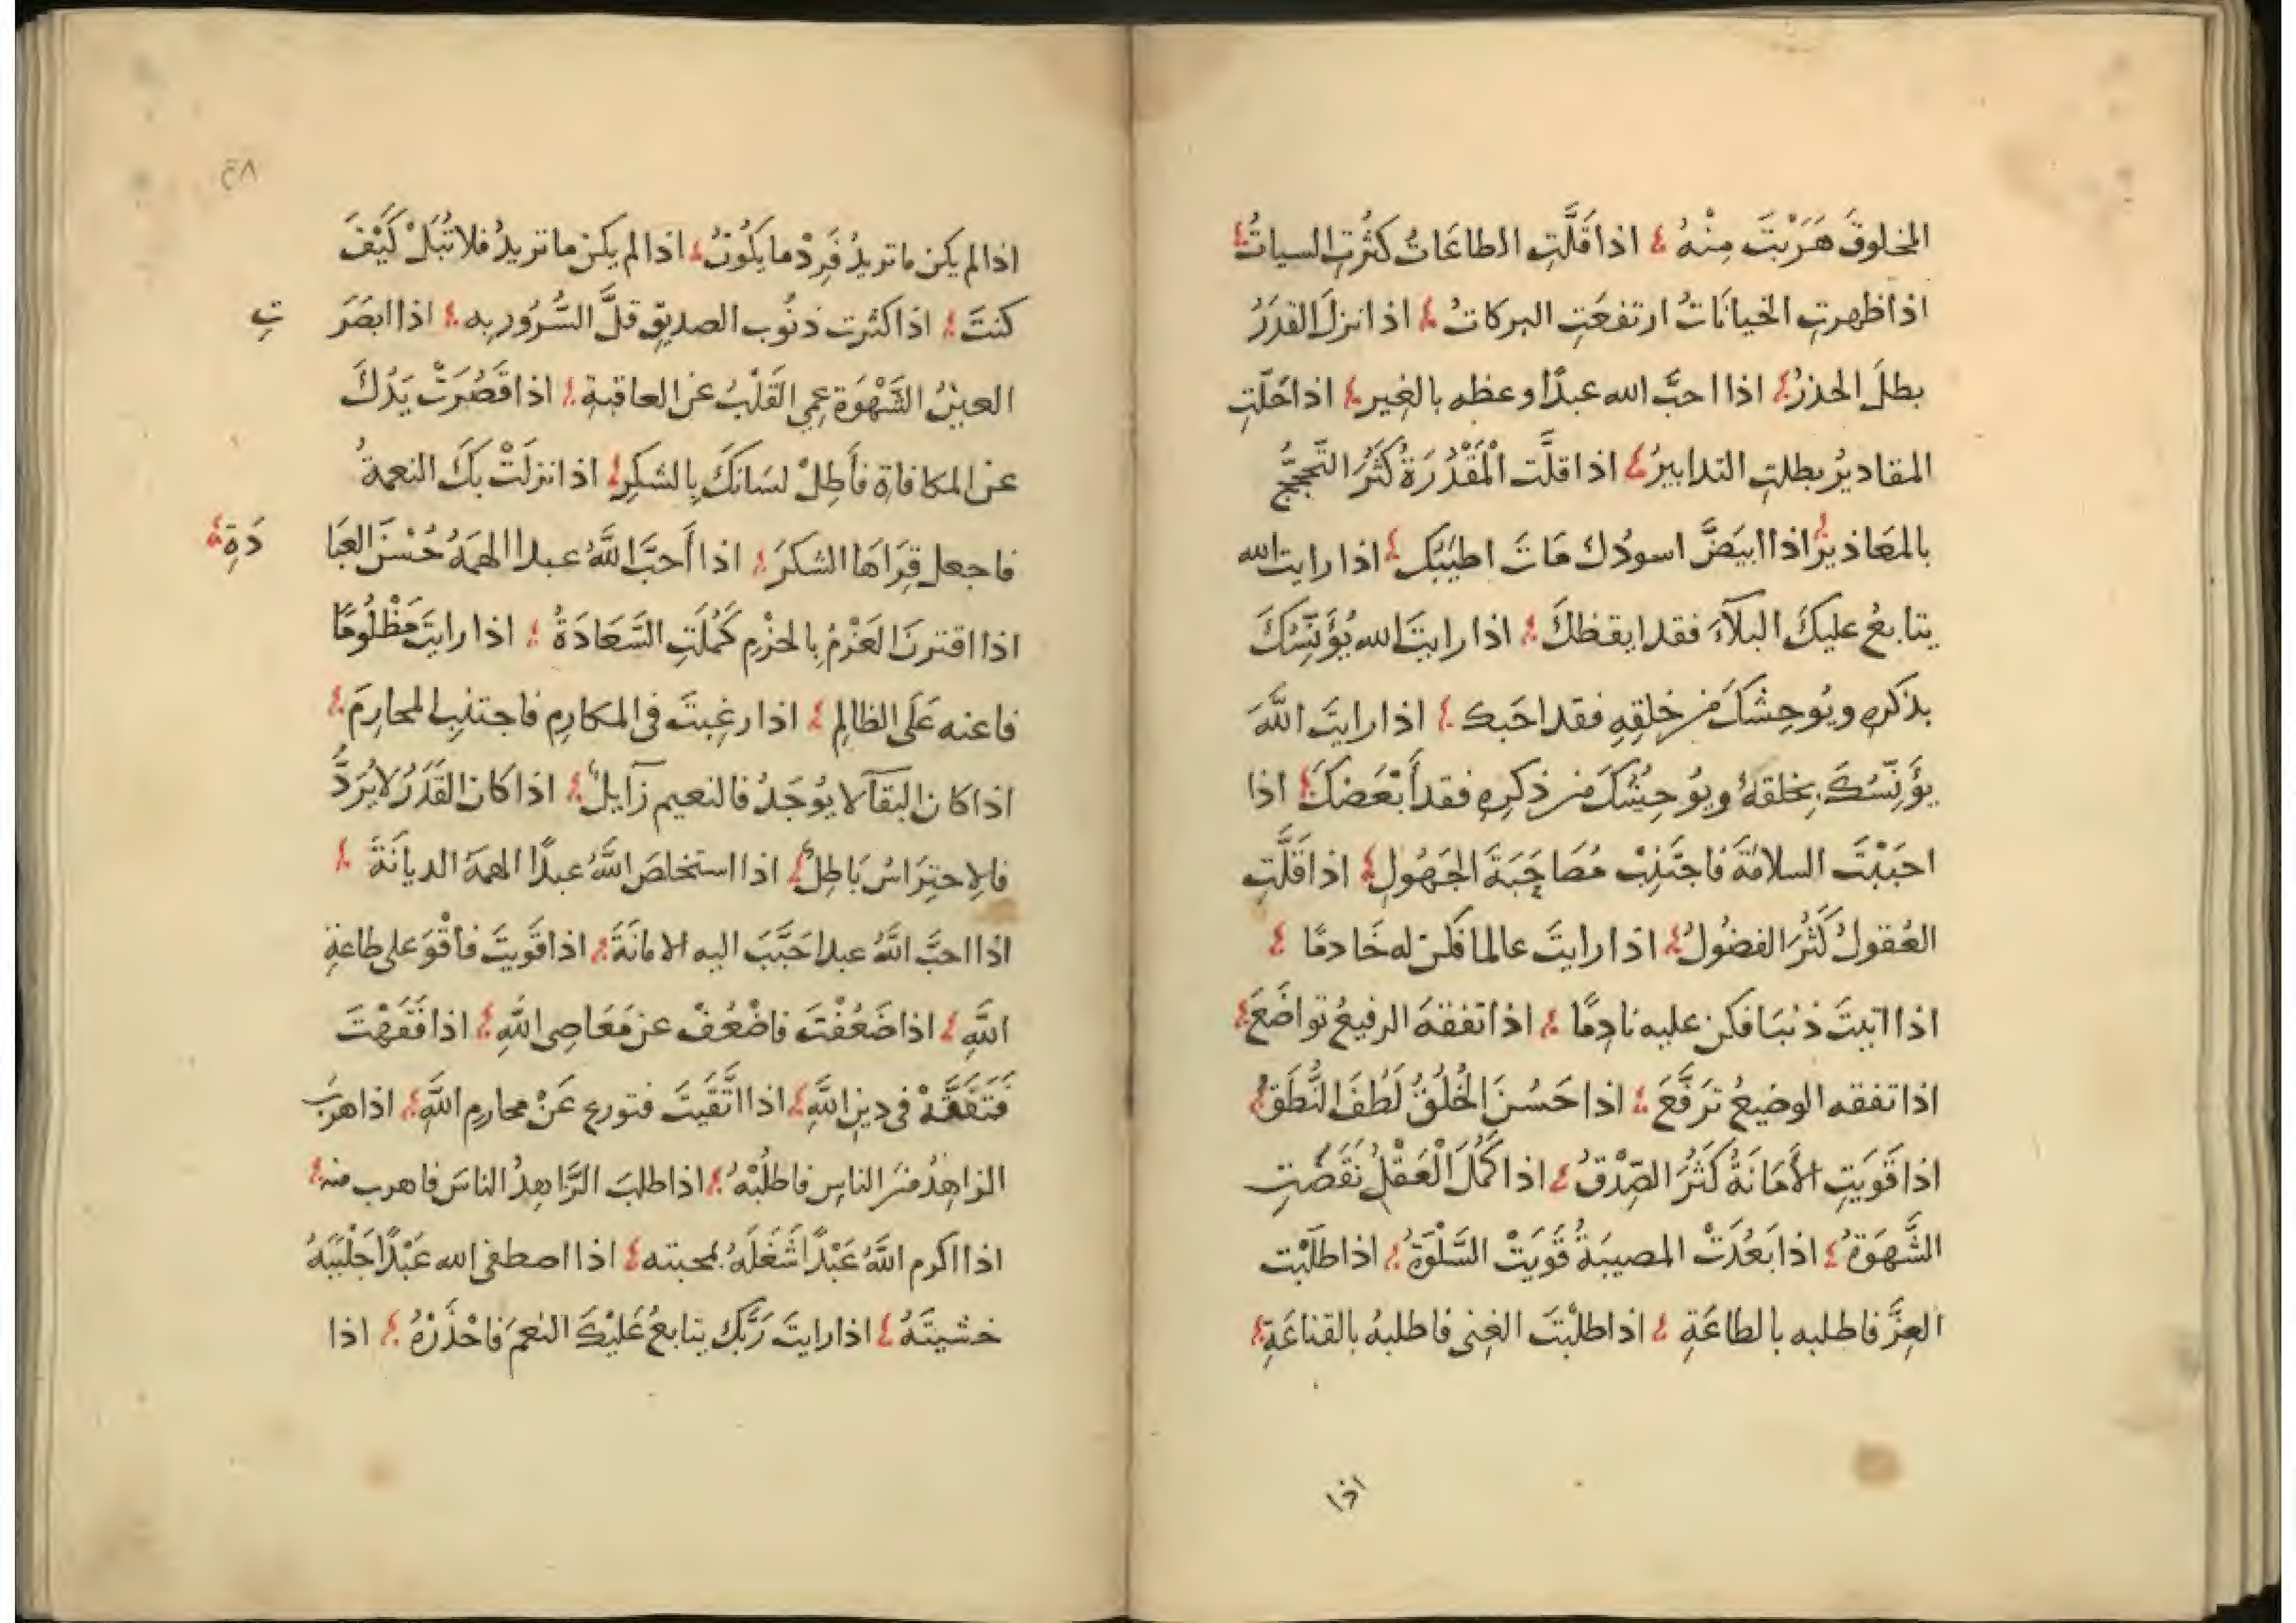 المخلوقَ هَرَبْتَ مِنْهُ اذا قَلَّتِ الطاعَاتُ كثُرتِ السياتُ
اذا ظهرتِ الخيانَاتُ ارتفعَتِ البركاتُ اذا نزلَ القدَرُ
بطلَ الحذرُ اذا احبَّ الله عبدًا وعظه بالغِيرِ اذا حَلّتِ
المقاديرُ بطلتِ التدابيرُ اذا قلَّت الْمَقْدُرَةُ كَثُرَ التَّحَجُّجُ
بالمعَاذيرُ اذا ابيَضَّ اسودُك مَاتَ اطيَبُك اذا رايت الله
يتابعُ عليكَ البلآءَ فقد ايقظكَ اذا رايتَ الله يُؤَنّسُكَ
بذكرِهِ ويُوحِشكَ من خلقِهِ فقد احَبك اذا رايتَ اللَّهَ
يؤَنِّسُكَ بخلقهِ ويُوحِشُكَ من ذكرِهِ فقد أَبْغَضَكَ اذا
احبَبْتَ السلامَةَ فاجتَنِبْ مُصَاحَبَةَ الجَهُولِ اذا قَلَّتِ
العُقولُ كَثُرَ الفضُولُ اذا رايتَ عالما فكن له خَادمًا
اذا اتيتَ ذنبَا فكن عليه نادِمًا اذا تفقهَ الرفيعُ تواضَعَ
اذا تفقه الوضيعُ تَرَفَّعَ اذا حَسُنَ الخُلُقُ لَطُفَ النُّطقُ
اذا قَويَتِ الأَمَانَةُ كَثُرَ الصِّدْقُ اذا كَمُلَ الْعَقْلُ نقَصَتِ
الشَّهوَةُ اذا بَعُدَتْ المصيبَةُ قَويَتْ السَّلْوَةُ اذا طلَبْت
العِزَّ فاطلبه بالطاعَةِ اذا طلبْتَ الغِنى فاطلبهُ بالقناعَةِ
اذا
٢٨
اذا لم يكن ما تريدُ فَرِدْ ما يكُونُ اذا لم يكن ما تريدُ فلا تُبَلْ كَيْفَ
كنتَ اذا كثرت ذنُوب الصديق قلَّ السُّرُور به اذا ابصَرَ
تِ
العينُ الشَّهْوَة عمِي القَلْبُ عن العاقبةِ اذا قَصُرَتْ يَدُكَ
عن المكافاةِ فأَطِلْ لسَانكَ بِالشكرِ اذا نزلَتْ بكَ النعمةُ
فاجعل قِرَاهَا الشكرَ اذا أَحبَّ اللَّهُ عبدا الهمَهُ حُسْنَ العبَا
دَةِ
اذا اقترنَ العَزْمُ بِالحزْمِ كَمُلَتِ السَّعَادَةُ اذا رايتَ مَظْلُومًا
فاعنه عَلَى الظالِمِ اذا رغِبتَ فى المكارِم فاجتنبِ المحارِمَ
اذا كان البقآ لا يوُجَدُ فالنعيم زآيلٌ اذا كان القَدَرُ لا يُرَدُّ
فالاحتِرَاسُ بَاطِلٌ اذا استخلصَ اللَّهُ عبدًا الهمَهُ الديانَةَ
اذا احبَّ اللَّهُ عبدا حَبَّبَ اليه الامانَةَ اذا قَوِيتَ فأقْوَ على طاعةِ
اللَّهِ اذا ضَعُفْتَ فاضْعُفْ عن مَعَاصِى اللَّهِ اذا فَقَهْتَ
فَتَفَقَّهْ فى دينِ اللَّهِ اذا اتَّقَيتَ فتورع عَنْ محارمِ اللَّهِ اذا هربَ
الزاهِدُ منَ الناسِ فاطلُبْهُ اذا طلبَ الزَّاهِدُ الناسَ فاهرب منه
اذا اكرم اللَّهُ عَبْدًا شَغَلَهُ بمحبته اذا اصطفى الله عَبْدًا جَلْبَبَهُ
خشيتَهُ اذا رايتَ رَبَّك يتابعُ عَليْكَ النعمَ فاحْذَرْهُ اذا